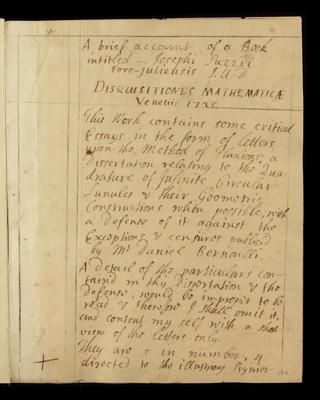 A brief account of a Book
intitled – Josephi Suzzii
Foro-Juliensis J.U.D
DISQUISITIONES MATHEMATICÆ
Venetiis 1725.
This Work contains some critical
Essays in the form of Letters
upon the Method of Fluxions; a
dissertation relating to the Qua
drature of infinite Circular
Lunules & their Geometric
Constructions when possible, with
a Defense of it against the
Exceptions & censures publised
by Mr Daniel Bernoulli
A detail of the particulars con-
tain'd in this Dissertation & the
Defense, would be improper to be
read & therefore I shall omit it,
and content my self with a short
view of the Letters only.
They are 5 in number, 4
directed to the illustrious Signor